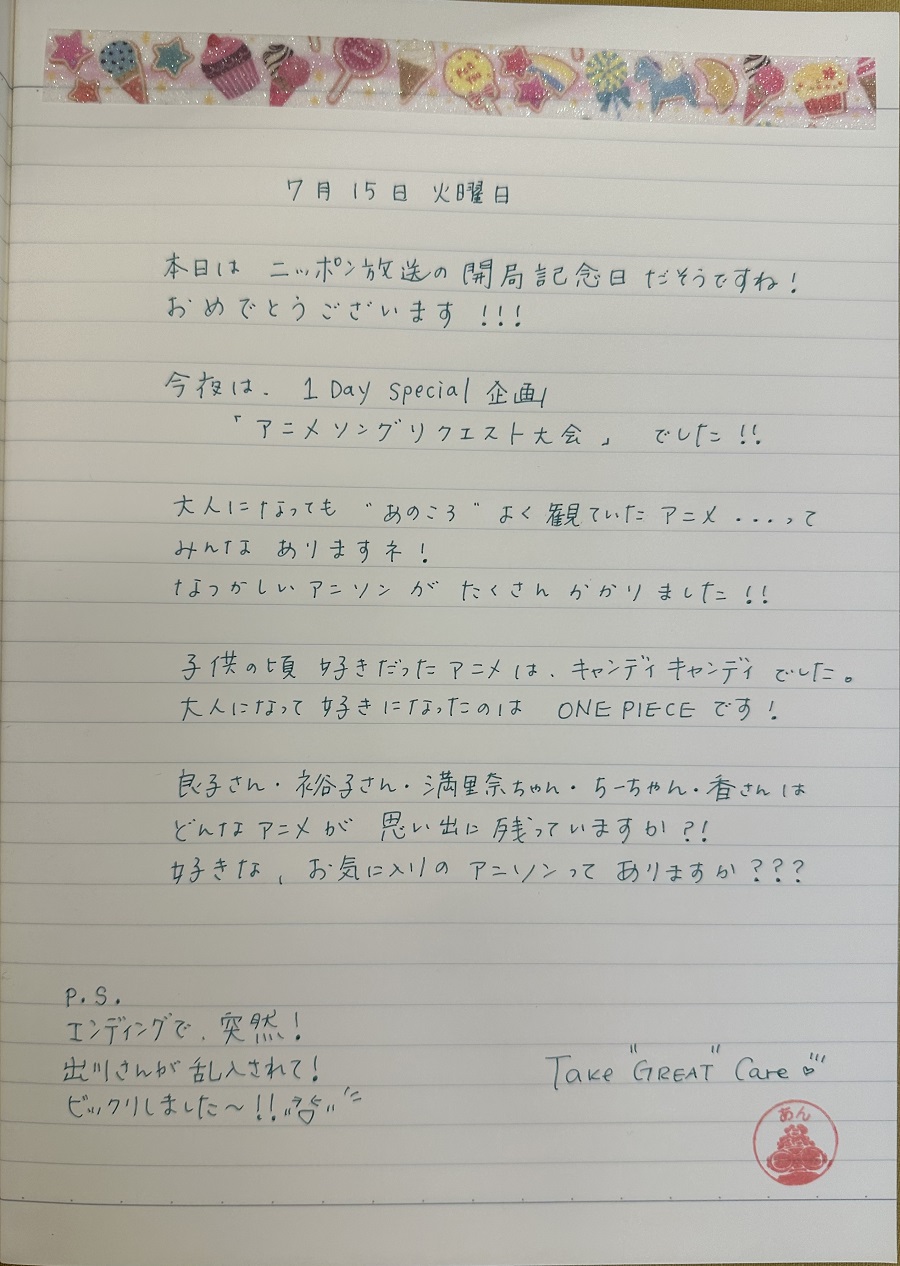 7月15日 火曜日
本日は ニッポン放送の 開局記念日 だそうですね!
おめでとうございます!!!
今夜は、1 Day Special 企画
「アニメソングリクエスト大会」 でした!!
大人になっても “あのころ” よく観ていた アニメ ....って
みんな ありますネ!
なつかしい アニソン が たくさん かかりました!!
子供の頃 好きだった アニメ は、キャンディ キャンディ でした。
大人になって 好きになったのは ONE PIECE です!
良子さん・裕子さん・満里奈ちゃん・ちーちゃん・香さんは
どんな アニメ が 思い出に 残っていますか?!
好きな、お気に入りの アニソンって ありますか???
P.S.
エンディングで、突然!
出川さんが 乱入されて!
ビックリしました〜!!
Take "GREAT" Care
あん